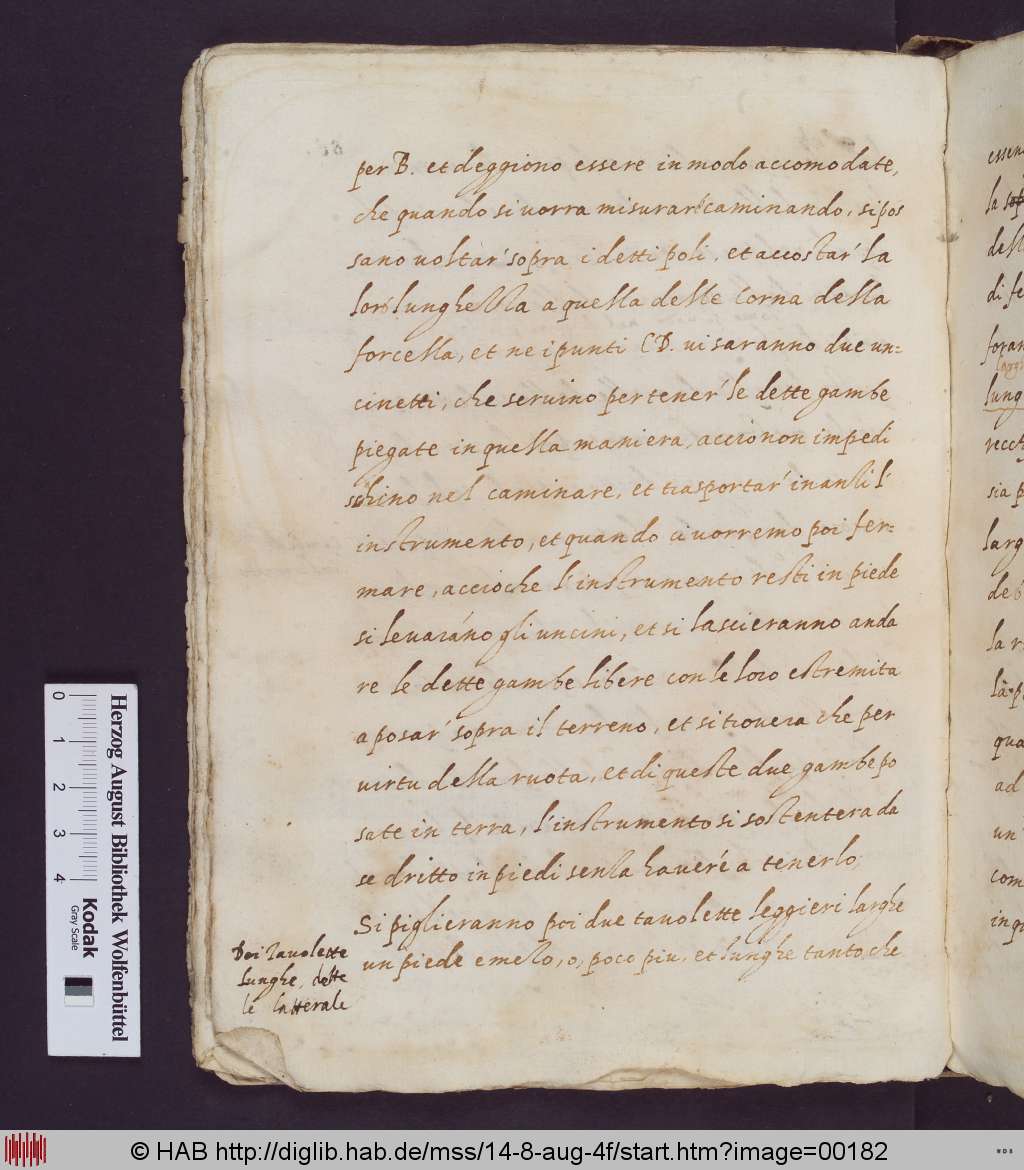 per B. et deggiono essere in modo accomodate,
che quando si uorra misurar' caminando, si pos
sano uoltar' sopra i detti poli, et accostar' la
loro lunghezza a quella delle Corna della
forcella, et ne i punti CD. ui saranno due un=
cinetti, che seruino per tener' le dette gambe
piegate in quella maniera, accio non impedi
schino nel caminare, et trasportar' inanzi l'
instrumento, et quando ci uorremo poi fer=
mare, accioche l'instrumento resti in piede
si leuaráno gli uncini, et si lascieranno anda
re le dette gambe libere con le loro estremita
a posar' sopra il terreno, et si trouera che per
uirtu della ruota, et di queste due gambe po
sate in terra, l'instrumento si sostentera da
se dritto in piedi senza haueré a tenerlo,
Si piglieranno poi due tauolette leggieri larghe
un piede e mezo, o, poco piu, et lunghe tanto, che
Doi Tauolette
lunghe, dette
le latterale
essen
la
dell
di fe
foran
lung
recct
sia p
larg
deb
la r
là p
qua
ad
un
com
in qu
0 1 2 3 4
Herzog August Bibliothek Wolfenbüttel
Kodak
Gray Scale
© HAB http://diglib.hab.de/mss/14-8-aug-4f/start.htm?image=00182